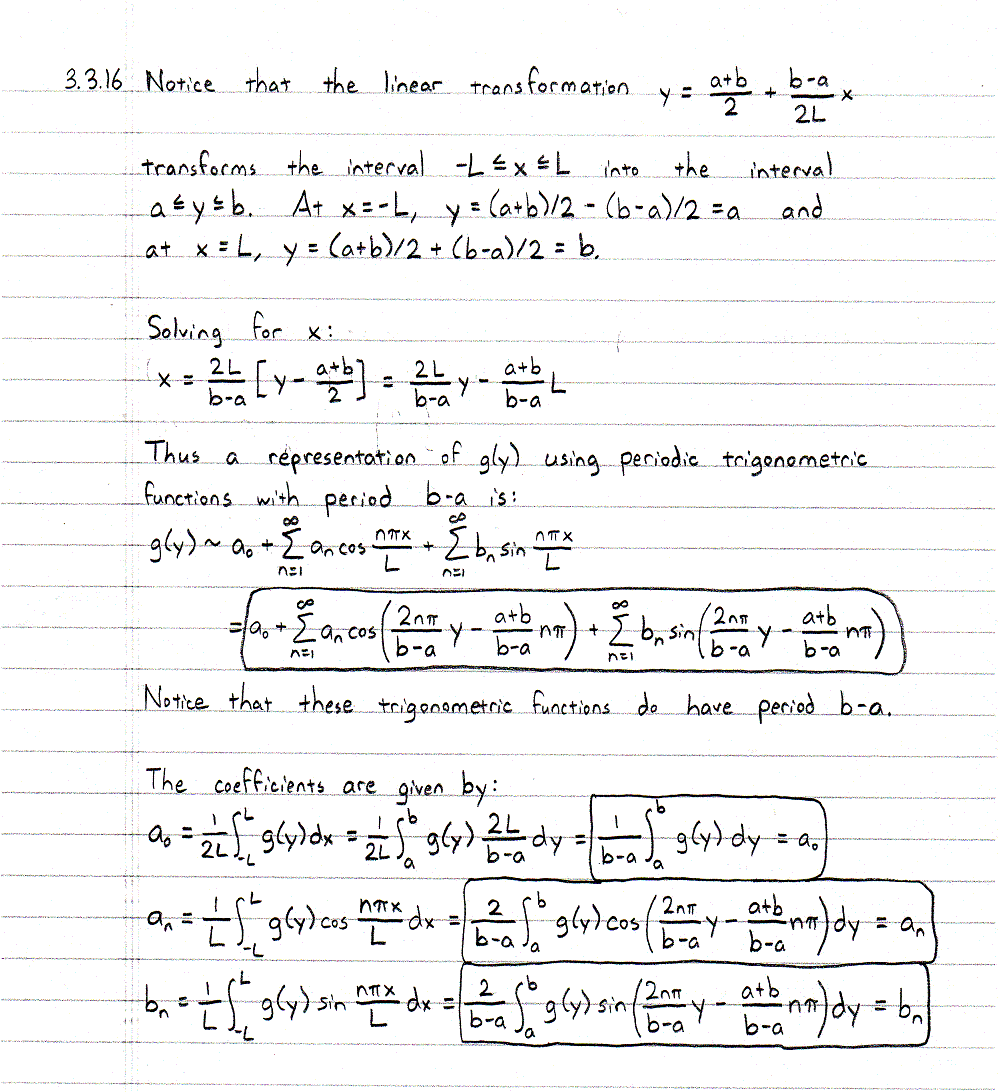 3.3.16 Notice that the linear transformation y = (a+b)/2 + (b-a)/(2L) x
transforms the interval -L ≤ x ≤ L into the interval
a ≤ y ≤ b. At x = -L, y = (a+b)/2 - (b-a)/2 = a and
at x = L, y = (a+b)/2 + (b-a)/2 = b.
Solving for x:
x = 2L/(b-a) [y - (a+b)/2] = 2L/(b-a) y - (a+b)/(b-a) L
Thus a representation of g(y) using periodic trigonometric
functions with period b-a is:
g(y) ~ a₀ + ∑_{n=1}^{∞} aₙ cos nπx/L + ∑_{n=1}^{∞} bₙ sin nπx/L
= a₀ + ∑_{n=1}^{∞} aₙ cos(2nπ/(b-a) y - (a+b)/(b-a) nπ) + ∑_{n=1}^{∞} bₙ sin(2nπ/(b-a) y - (a+b)/(b-a) nπ)
Notice that these trigonometric functions do have period b-a.
The coefficients are given by:
a₀ = 1/(2L) ∫_{-L}^{L} g(y) dx = 1/(2L) ∫_{a}^{b} g(y) 2L/(b-a) dy = 1/(b-a) ∫_{a}^{b} g(y) dy = a₀
aₙ = 1/L ∫_{-L}^{L} g(y) cos nπx/L dx = 2/(b-a) ∫_{a}^{b} g(y) cos(2nπ/(b-a) y - (a+b)/(b-a) nπ) dy = aₙ
bₙ = 1/L ∫_{-L}^{L} g(y) sin nπx/L dx = 2/(b-a) ∫_{a}^{b} g(y) sin(2nπ/(b-a) y - (a+b)/(b-a) nπ) dy = bₙ